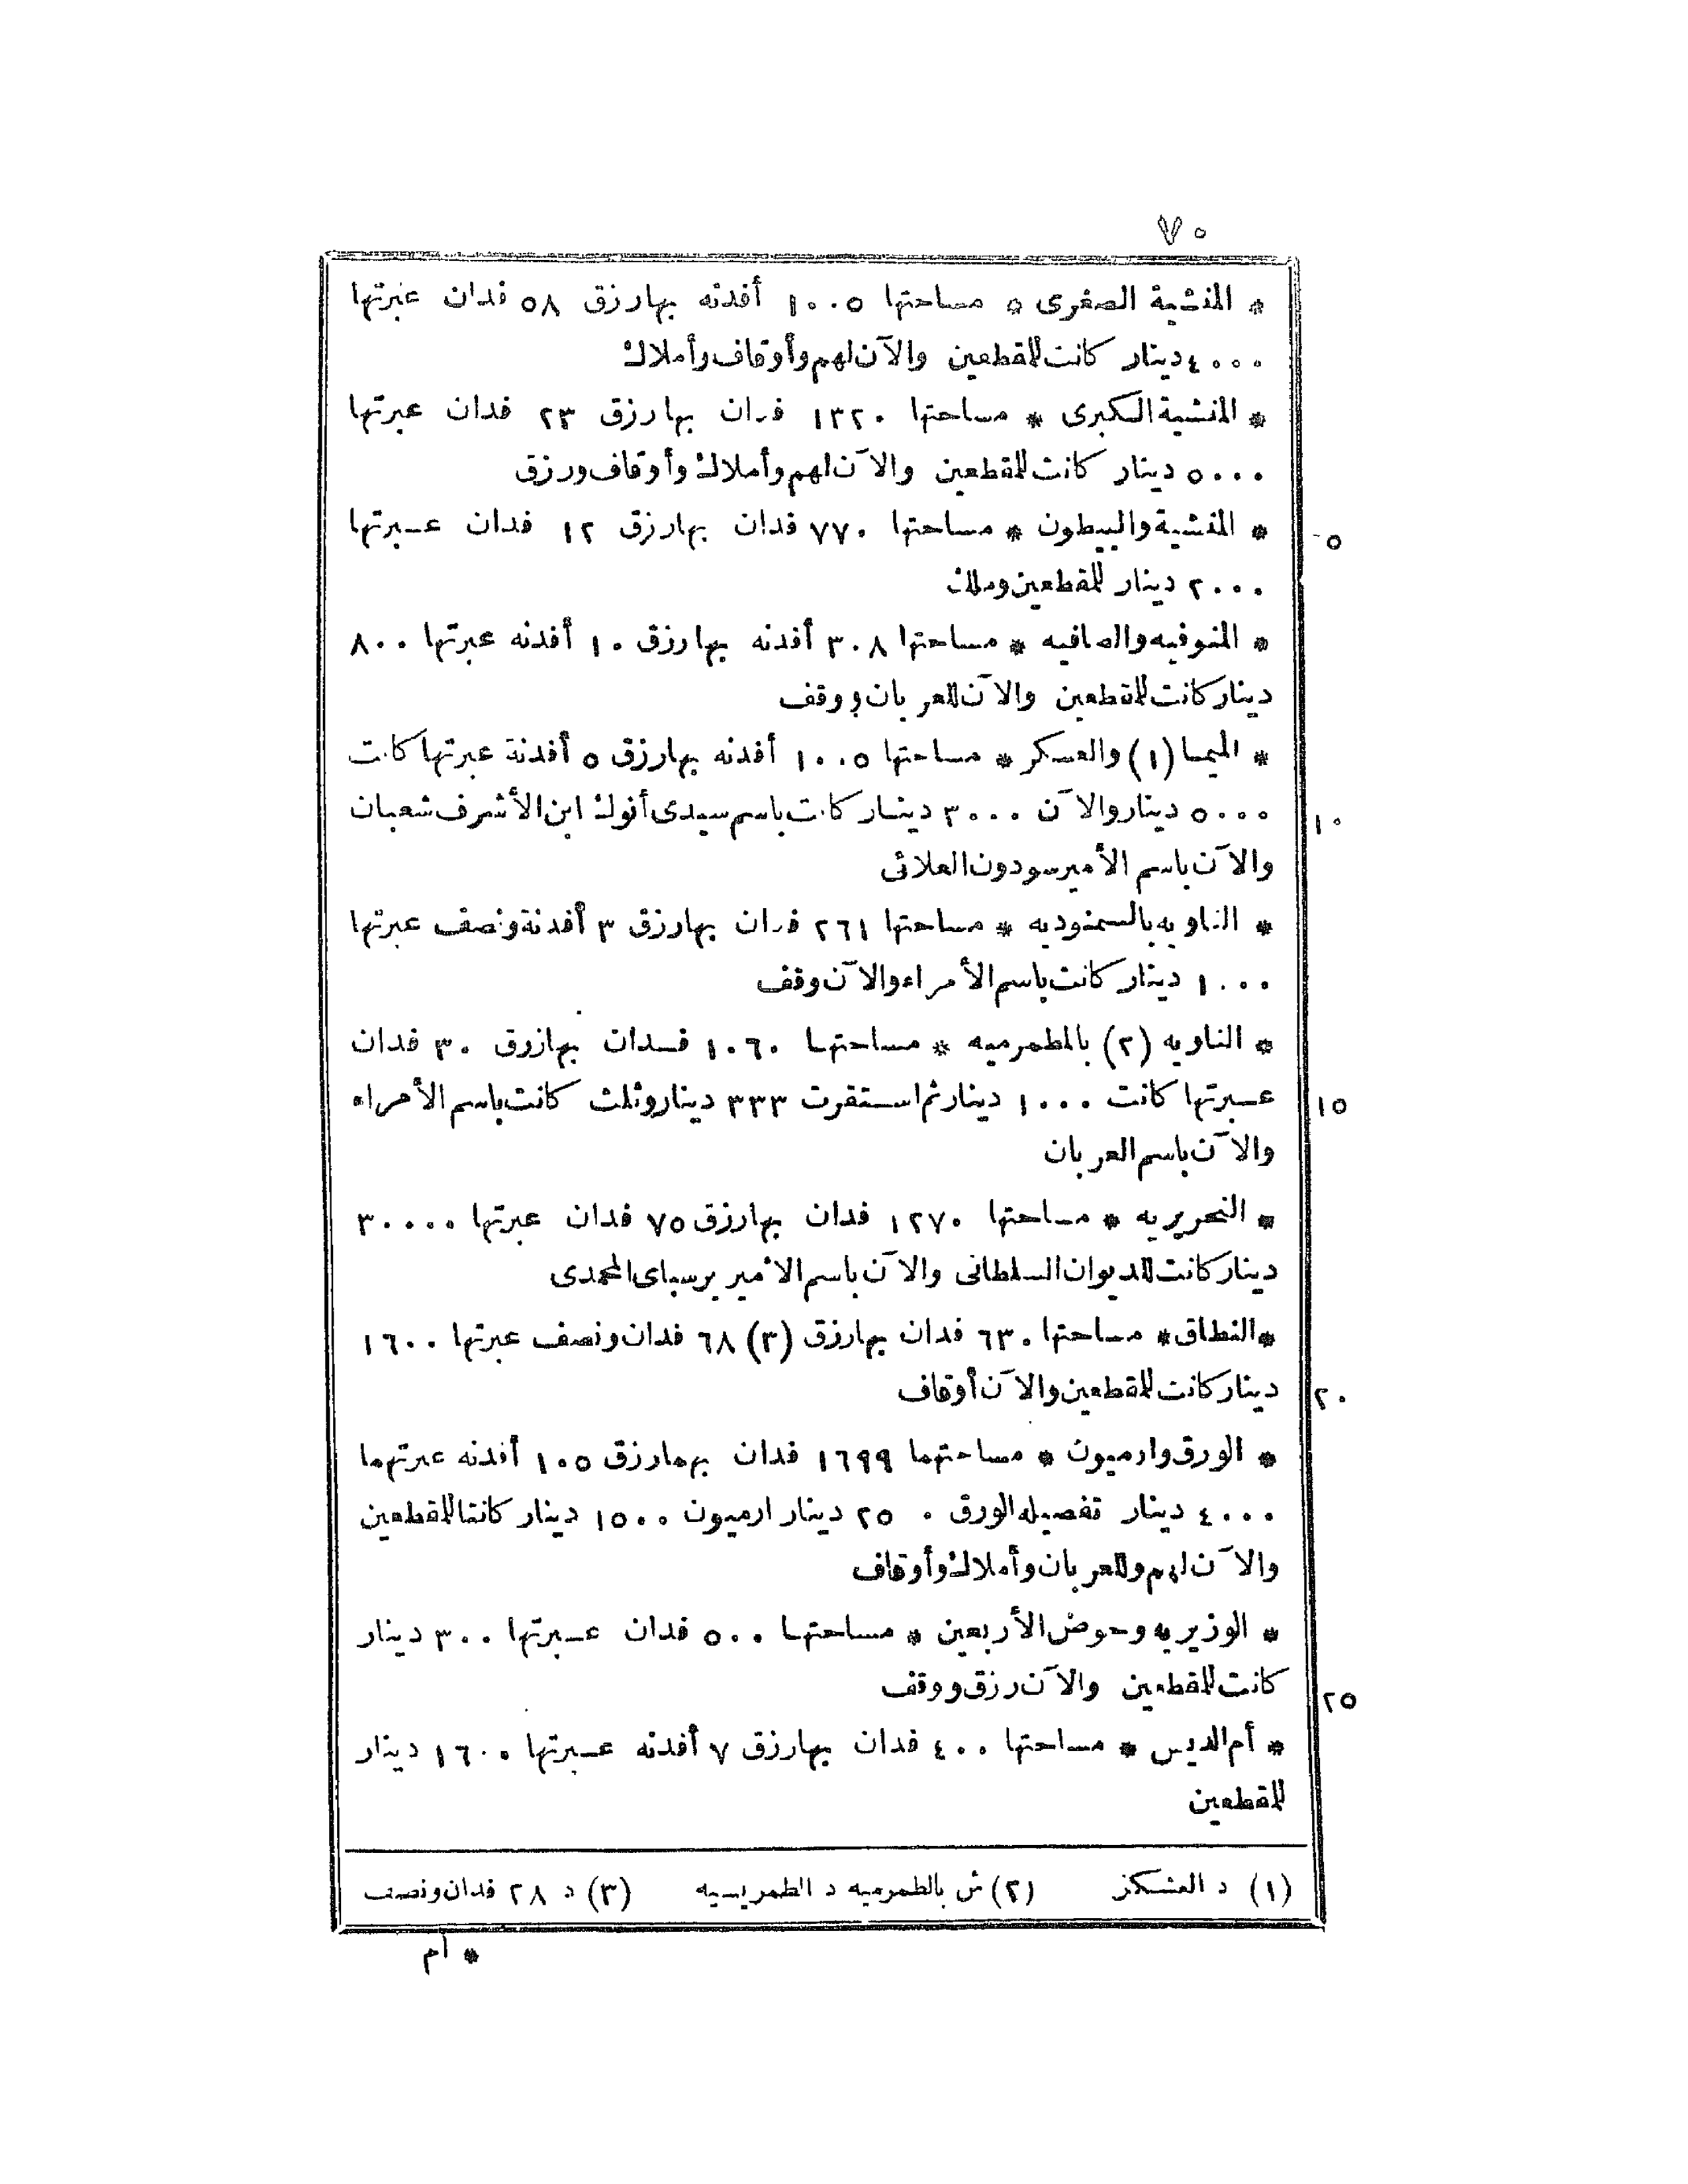 ٧٠
* المنشية الصغرى * مساحتها ١٠٠٥ أفدنه بها رزق ٥٨ فدان عبرتها
٤٠٠٠ دينار كانت للمقطعين والآن لهم وأوقاف وأملاك
* المنشية الكبرى * مساحتها ١٣٢٠ فدان بها رزق ٢٣ فدان عبرتها
٥٠٠٠ دينار كانت للمقطعين والآن لهم وأملاك وأوقاف ورزق
* المنشية والبيطون * مساحتها ٧٧٠ فدان بها رزق ١٢ فدان عبرتها ٥
٢٠٠٠ دينار للمقطعين وملك
* المنوفيه والصافيه * مساحتها ٣٠٨ أفدنه بها رزق ١٠ أفدنه عبرتها ٨٠٠
دينار كانت للمقطعين والآن للعربان ووقف
* الميما (١) والعسكر * مساحتها ١٠٠٥ أفدنه بها رزق ٥ أفدنة عبرتها كانت
٥٠٠٠ دينار والآن ٣٠٠٠ دينار كانت باسم سيدى أنوك ابن الأشرف شعبان ١٠
والآن باسم الأمير سودون العلائى
* الناويه بالسمنوديه * مساحتها ٢٦١ فدان بها رزق ٣ أفدنة ونصف عبرتها
١٠٠٠ دينار كانت باسم الأمراء والآن وقف
* الناويه (٢) بالمطمرميه * مساحتها ١٠٦٠ فدان بها رزق ٣٠ فدان
عبرتها كانت ١٠٠٠ دينار ثم استقرت ٣٣٣ دينار وثلث كانت باسم الأمراء ١٥
والآن باسم العربان
* النحريريه * مساحتها ١٢٧٠ فدان بها رزق ٧٥ فدان عبرتها ٣٠٠٠٠
دينار كانت للديوان السلطانى والآن باسم الأمير برسباى المحمدى
* النطاق * مساحتها ٦٣٠ فدان بها رزق (٣) ٦٨ فدان ونصف عبرتها ١٦٠٠
دينار كانت للمقطعين والآن أوقاف ٢٠
* الورق وارميون * مساحتهما ١٦٩٩ فدان بهما رزق ١٠٥ أفدنه عبرتهما
٤٠٠٠ دينار تفصيله الورق ٢٥٠ دينار ارميون ١٥٠٠ دينار كانتا للمقطعين
والآن لهم وللعربان وأملاك وأوقاف
* الوزيريه وحوض الأربعين * مساحتها ٥٠٠ فدان عبرتها ٣٠٠ دينار
كانت للمقطعين والآن رزق ووقف ٢٥
* أم الديس * مساحتها ٤٠٠ فدان بها رزق ٧ أفدنه عبرتها ١٦٠٠ دينار
للمقطعين
(١) د العشكز (٢) ش بالطمرميه د الطمريسيه (٣) د ٢٨ فدان ونصف
* أم